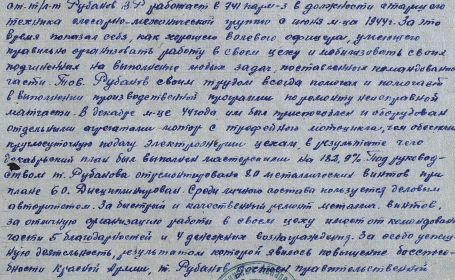 ст. т/л-т Рубанов З.Р работает в 941 парм-3 в должности старшего
техника слесарно-механической группы с июня м-ца 1944г. За это
время показал себя, как хорошего волевого офицера, умеющего
правильно организовать работу в своем цеху и мобилизовать своих
подчиненных на выполнение любых задач, поставленных командованием
части. Тов. Рубанов своим трудом всегда помогал и помогает
в выполнении производственной программы по ремонту неисправной
матчасти. В декабре м-це 44 года им был приспособлен и оборудован
отдельным агрегатом мотор с трофейного мотоцикла, чем обеспечил
круглосуточную подачу электроэнергии цехам, в результате чего
декабрьский план был выполнен мастерскими на 182,9%. Под руковод-
ством т. Рубанова отремонтировано 80 металлических винтов при
плане 60. Дисциплинирован. Среди личного состава пользуется деловым
авторитетом. За быстрый и качественный ремонт металлич. винтов,
за отличную организацию работы в своем цеху имеет от командования
части 5 благодарностей и 4 денежных вознаграждения. За особо успеш-
ную деятельность, результатом которой явилось повышение боеспосо-
бности Красной Армии, т. Рубанов достоин правительственной